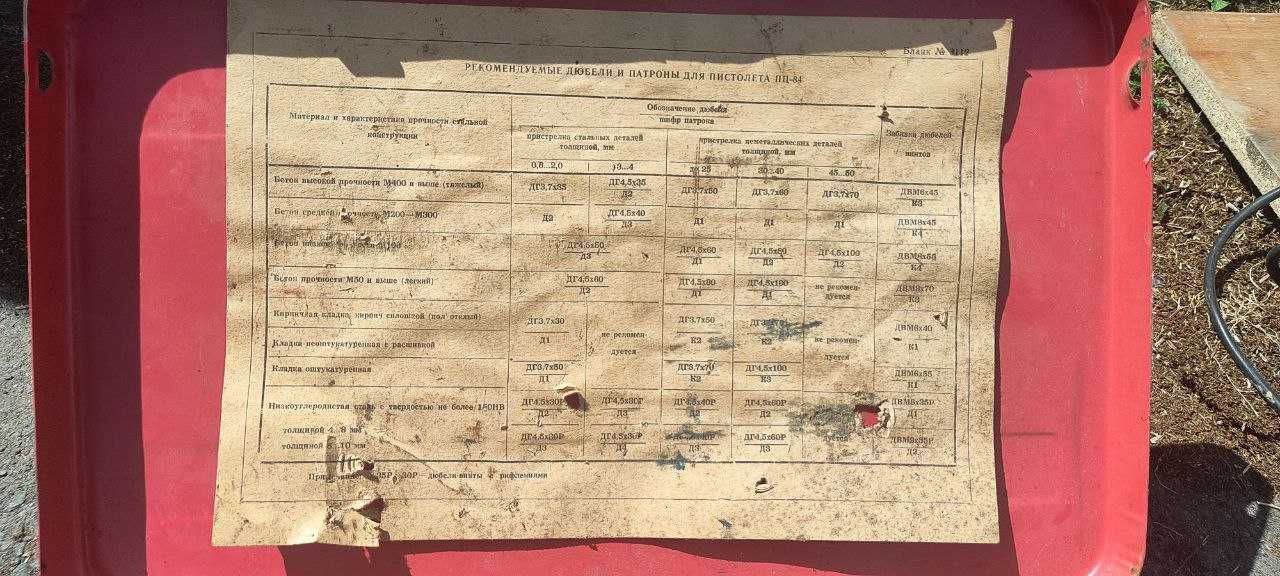 Бланк № 3119
РЕКОМЕНДУЕМЫЕ ДЮБЕЛИ И ПАТРОНЫ ДЛЯ ПИСТОЛЕТА ПЦ-84
Материал и характеристика прочности стальной конструкции
Обозначение дюбеля
шифр патрона
Забивка дюбелей винтов
пристрелка стальных деталей толщиной, мм
пристрелка неметаллических деталей толщиной, мм
0,8...2,0 3...4 до 25 30...40 45...50
Бетон высокой прочности М400 и выше (тяжелый) ДГ3,7х35 ДГ4,5х35 ДГ3,7х50 ДГ3,7х60 ДГ3,7х70 ДВМ6х45
Д2 К3
Бетон средней прочности М200—М300 ДГ4,5х40 ДВМ8х45
Д2 Д3 Д1 Д1 Д1 К4
Бетон ДГ4,5х50 ДГ4,5х60 ДГ4,5х80 ДГ4,5х100 ДВМ8х55
Д3 Д1 Д2 Д2 К4
Бетон прочности М50 и выше (легкий) ДГ4,5х60 ДГ4,5х80 ДГ4,5х100 не рекомен- ДВМ8х70
Д2 Д1 Д1 дуется К3
Кирпичная кладка, кирпич сплошной (пол отелый) ДГ3,7х30 ДГ3,7х50 ДВМ6х40
Кладка неоштукатуренная с расшивкой Д1 не рекомен- К2 К2 не рекомен- К1
дуется дуется
Кладка оштукатуренная ДГ3,7х50 ДГ3,7х70 ДГ4,5х100 ДВМ6х55
Д1 К2 К3 К1
Низкоуглеродистая сталь с твердостью не более 150НВ ДГ4,5х30Р ДГ4,5х30Р ДГ4,5х40Р ДГ4,5х60Р ДВМ8х35Р
толщиной 4...8 мм Д2 Д3 Д2 Д2 Д1
толщиной 10 мм ДГ4,5х30Р ДГ4,5х30Р ДГ4,5х60Р дуется ДВМ8х35Р
Д3 Д4 Д3 Д3 Д2
30Р дюбели-винты с рифлениями